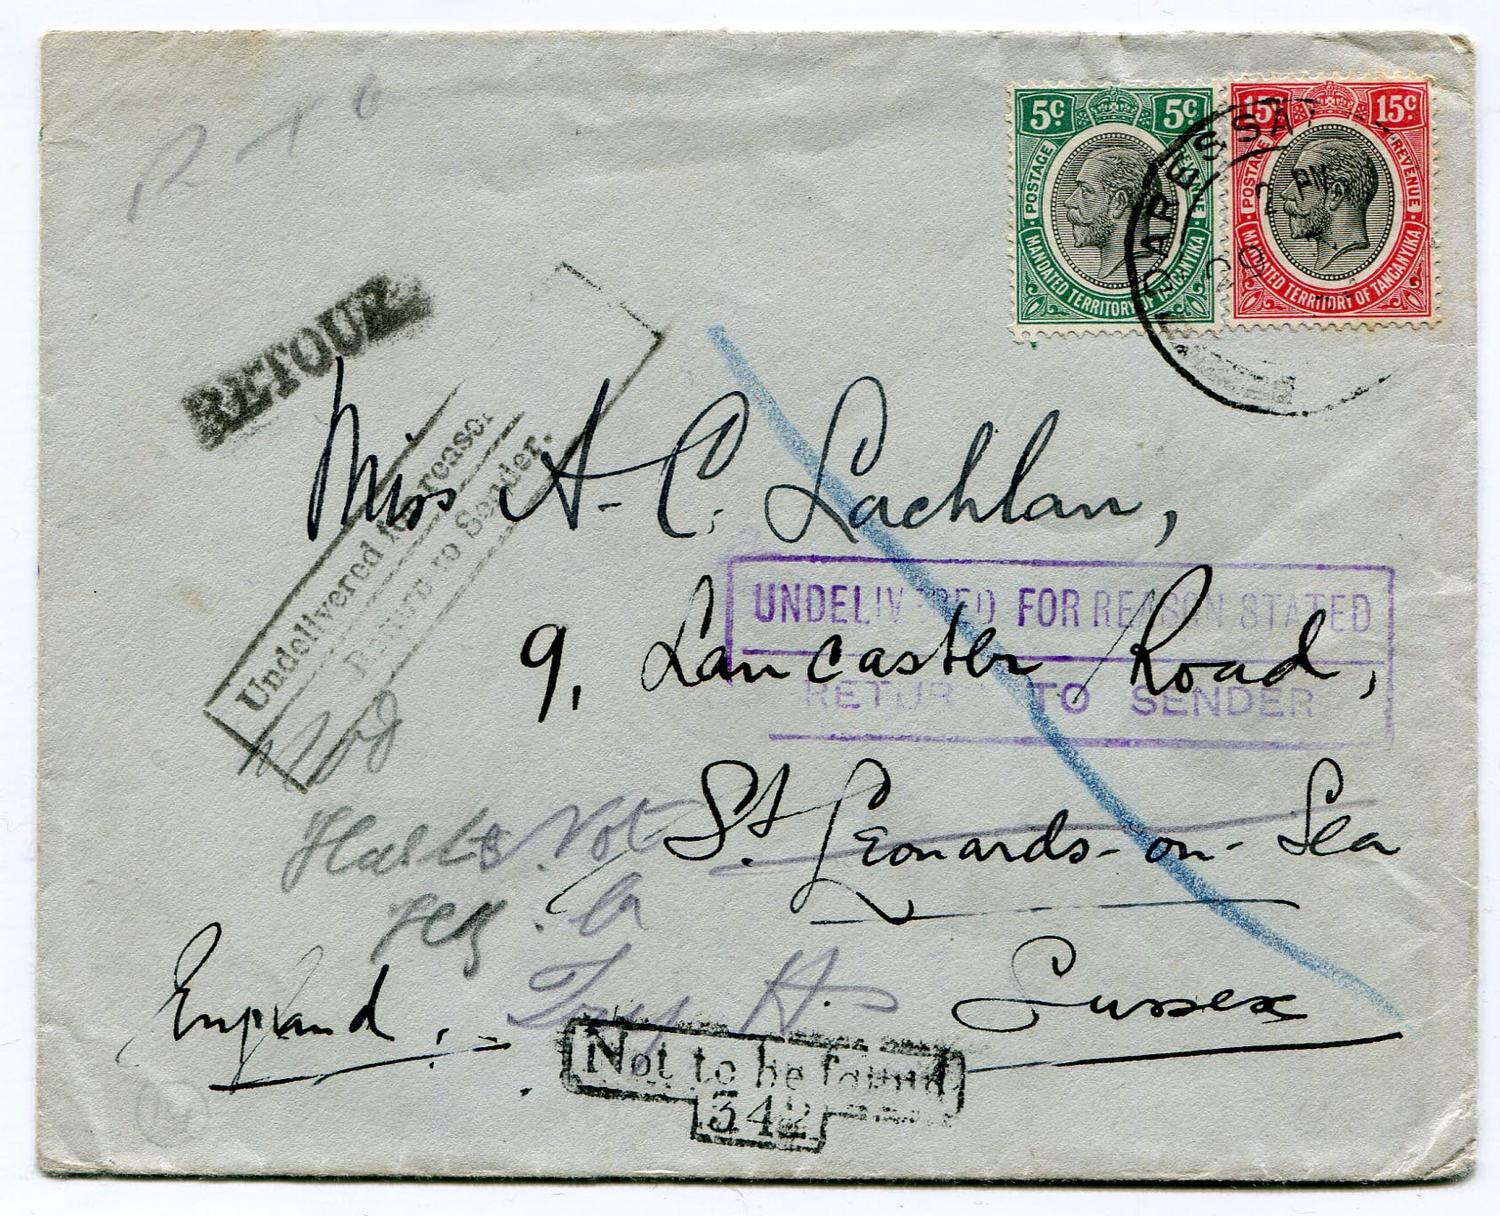 R T O
5c 5c
POSTAGE REVENUE
MANDATED TERRITORY OF TANGANYIKA
15c 15c
POSTAGE REVENUE
MANDATED TERRITORY OF TANGANYIKA
DAR-ES-SA
2 PM
29
RETOUR
Undelivered for reason
Return to Sender.
Miss A. C. Lachlan,
UNDELIVERED FOR REASON STATED
RETURN TO SENDER
9, Lancaster Road,
St. Leonards-on-Sea
Not
Try H.
Sussex
England.
Not to be found
342